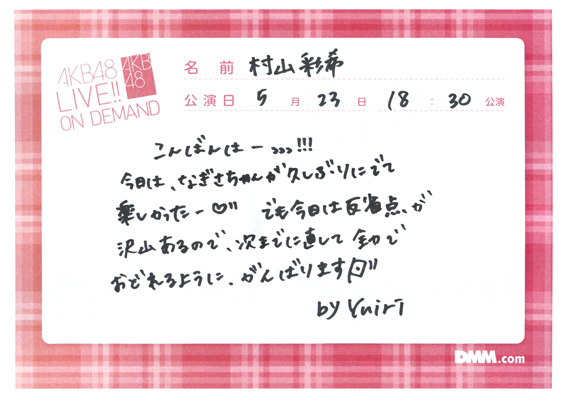 AKB48
LIVE!!
ON DEMAND
AKB
48
名前 村山彩希
公演日 5月23日 18:30 公演
こんばんはー、、、!!!
今日は、なぎさちゃんが久しぶりにでて
楽しかったー♡〃 でも今日は反省点が
沢山あるので、次までに直して全力で
おどれるように、がんばります
by Yuiri
DMM.com